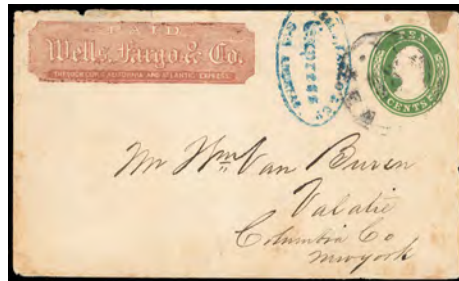 PAID
Wells, Fargo & Co.
THROUGH OUR CALIFORNIA AND ATLANTIC EXPRESS.
EXPRESS
TEN
CENTS
Mr Wm Van Buren
Valatie
Columbia Co
New york